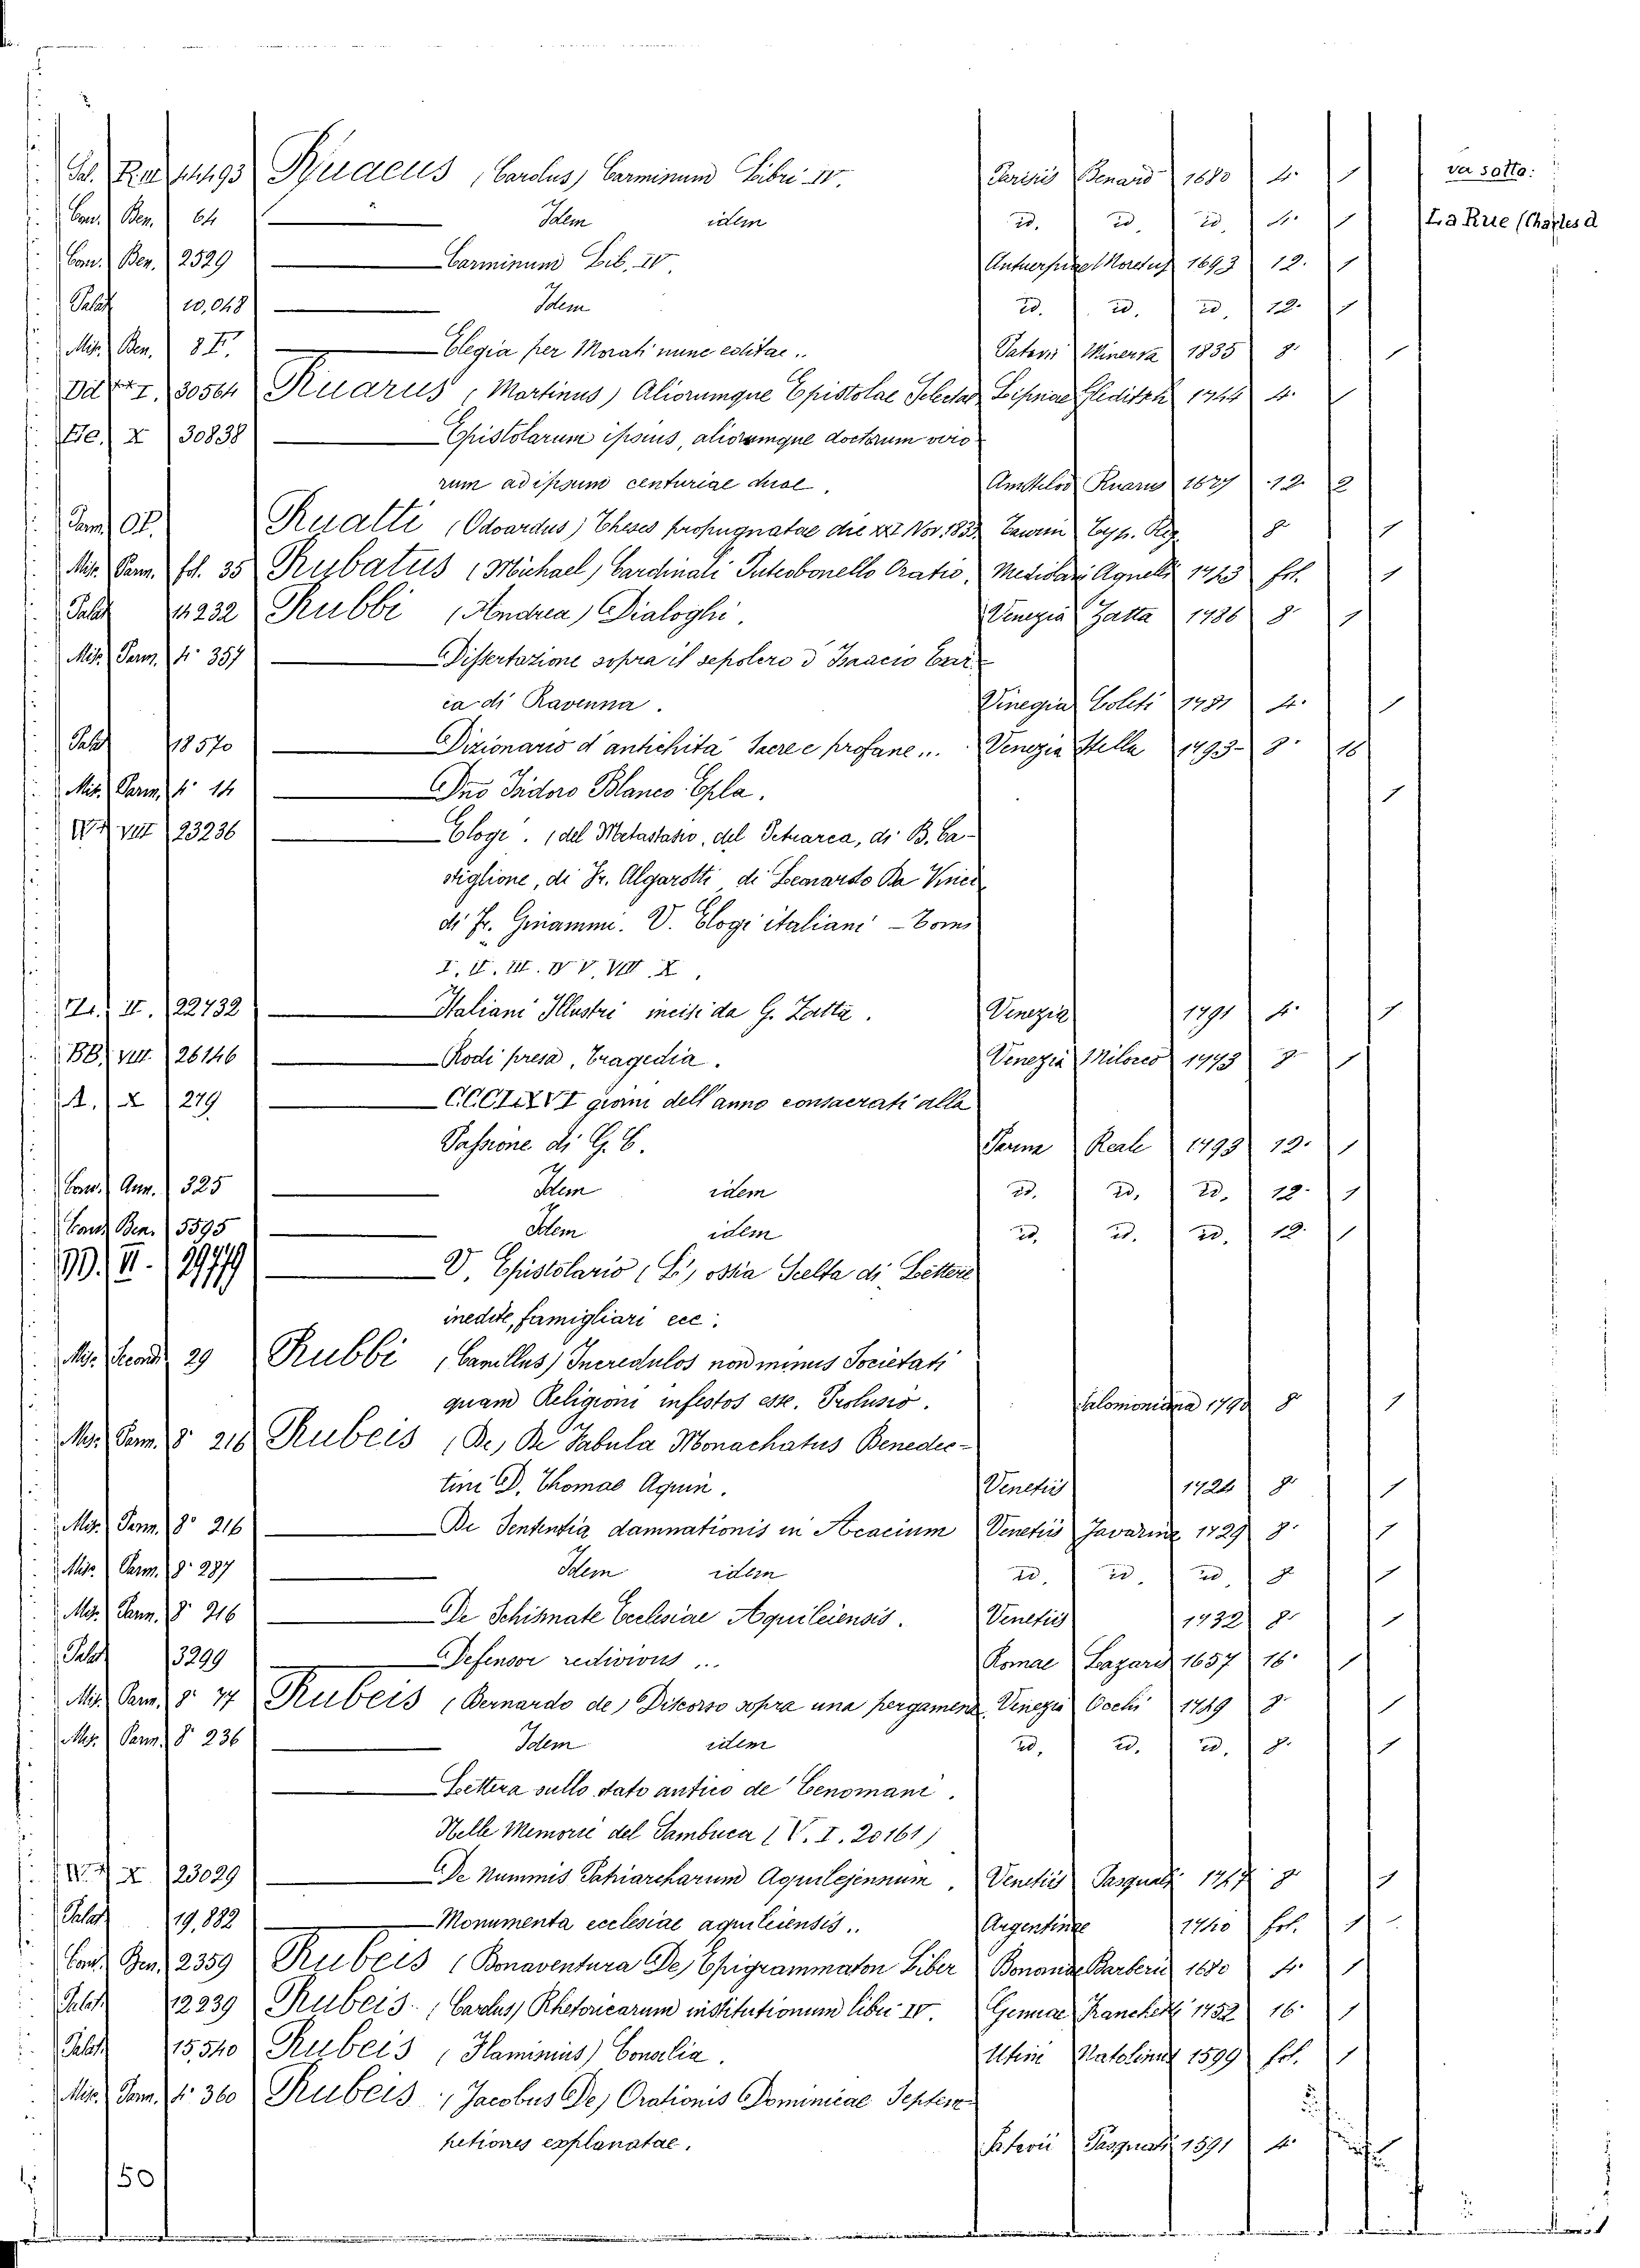 Ruaeus (Carolus) Carminum Libri IV. Parisis Benard 1680 4. 1 va sotto:
Con. Ben. 64 Idem idem id. id. id. 4. 1 La Rue (Charles d
Con. Ben. 2529 Carminum Lib. IV Moretus 1693 12. 1
Palat 10,048 Idem id. id. id. 12. 1
Mis. Ben. 8 Elegia per Morati nunc editae.. Minerva 1835 8. 1
30564 Ruarus (Martinus) Aliorumque Epistolae Selectae Lipsiae Gleditsch 1744 4.
X 30838 Epistolarum ipsius, aliorumque doctorum viro
rum ad ipsum centuriae duae. Amstelod Ruarus 1677 12. 2
Ruatti (Odoardus) Theses propugnatae die XXI Nov. 1833 Taurini Typ. Reg. 8. 1
Mis. Parm. fol. 35 Rubatus (Michael) Cardinali Puteobonello Oratio, Mediolani Agnelli 1713 fol. 1
Palat 11232 Rubbi (Andrea) Dialoghi. Venezia Zatta 1786 8. 1
Mis. Parm. 4° 357 Dissertazione sopra il sepolcro d'Isnacio Esar
ca di Ravenna. Vinegia Coleti 1781 4. 1
Palat 18570 Dizionario d'antichità sacre e profane... Venezia Stella 1793- 8. 16
Mis. Parm. 4° 14 Dno Isidoro Blanco Epla. 1
VIII 23236 Elogi. (del Metastasio, del Petrarca, di B. Ca-
stiglione, di Fr. Algarotti, di Leonardo Da Vinci
di Fr. Ginammi. V. Elogi italiani - Tomi
I. II. III. IV V. VIII. X.
II. 22732 Italiani Illustri incisi da G. Zatta. Venezia 1791 4. 1
BB. VIII. 26146 Rodi presa, Tragedia. Venezia Milocco 1773 8. 1
A. X 279 CCCLXVI giorni dell'anno consacrati alla
Passione di G. C. Parma Reale 1793 12. 1
Con. Ann. 325 Idem idem id. id. id. 12. 1
Con. Ben. 5595 Idem idem id. id. id. 12. 1
VI. 29779 V. Epistolario (L') ossia Scelta di Lettere
inedite, famigliari ecc.
29 Rubbi (Camillus) Incredulos non minus Societati
quam Religioni infestos esse. Prolusio. Salomoniana 1790 8 1
Mis. Parm. 8° 216 Rubeis (De) De Fabula Monachatus Benedic-
tini D. Thomae Aquin. Venetiis 1724 8. 1
Mis. Parm. 8° 216 De Sententia damnationis in Acacium Venetiis Javarina 1729 8. 1
Mis. Parm. 8° 287 Idem idem id. id. id. 8 1
Mis. Parm. 8° 216 De Schismate Ecclesiae Aquileiensis. Venetiis 1732 8. 1
Palat 3299 Defensor redivivus... Romae Lazaris 1657 16. 1
Mis. Parm. 8° 77 Rubeis (Bernardo de) Discorso sopra una pergamena Venezia Occhi 1749 8. 1
Mis. Parm. 8° 236 Idem idem id. id. id. 8. 1
Lettera sullo stato antico de' Cenomani.
Nelle Memorie del Sambuca (V. I. 20161)
X 23029 De Nummis Patriarcharum Aquilejensium. Venetiis Pasquali 1747 8. 1
Palat 19,882 Monumenta ecclesiae aquileiensis.. Argentinae 1740 fol. 1
Con. Ben. 2359 Rubeis (Bonaventura De) Epigrammaton Liber Bononiae Barberii 1680 4. 1
Palat 12239 Rubeis (Carolus) Rhetoricarum institutionum libri IV. Genuae Franchelli 1752 16. 1
Palat 15,540 Rubeis (Flaminius) Consilia. Utini Natolinus 1599 fol. 1
Mis. Parm. 4° 360 Rubeis (Jacobus De) Orationis Dominicae Septem
petiones explanatae. Patavii Pasquati 1591 4.
50